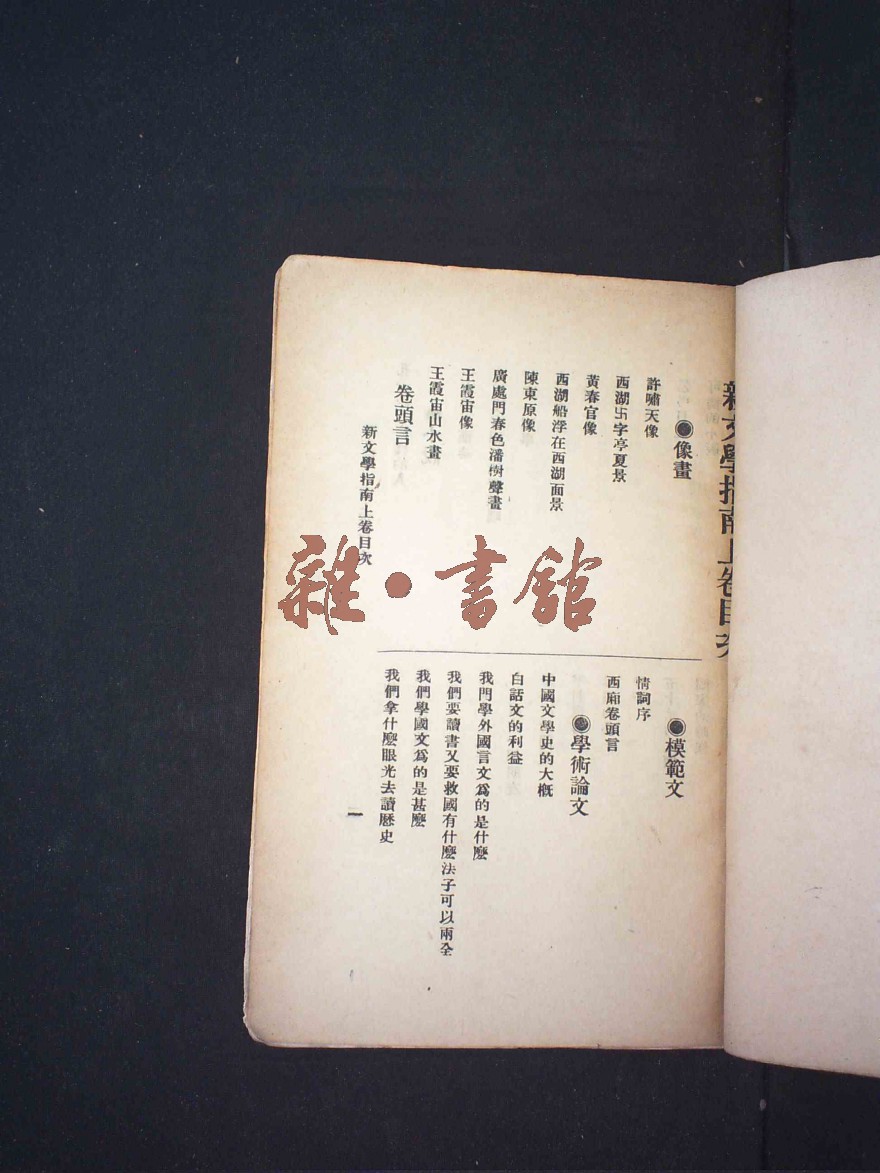 新文學指南上卷目次
◉像畫
許嘯天像
西湖卐字亭夏景
黃春官像
西湖船浮在西湖面景
陳東原像
廣處門春色潘樹聲畫
王霞宙像
王霞宙山水畫
卷頭言
◉模範文
情詞序
西廂卷頭言
◉學術論文
中國文學史的大概
白話文的利益
我門學外國言文爲的是什麽
我們要讀書又要救國有什麽法子可以兩全
我們學國文爲的是甚麽
我們拿什麽眼光去讀歷史
新文學指南上卷目次
一
雜·書館